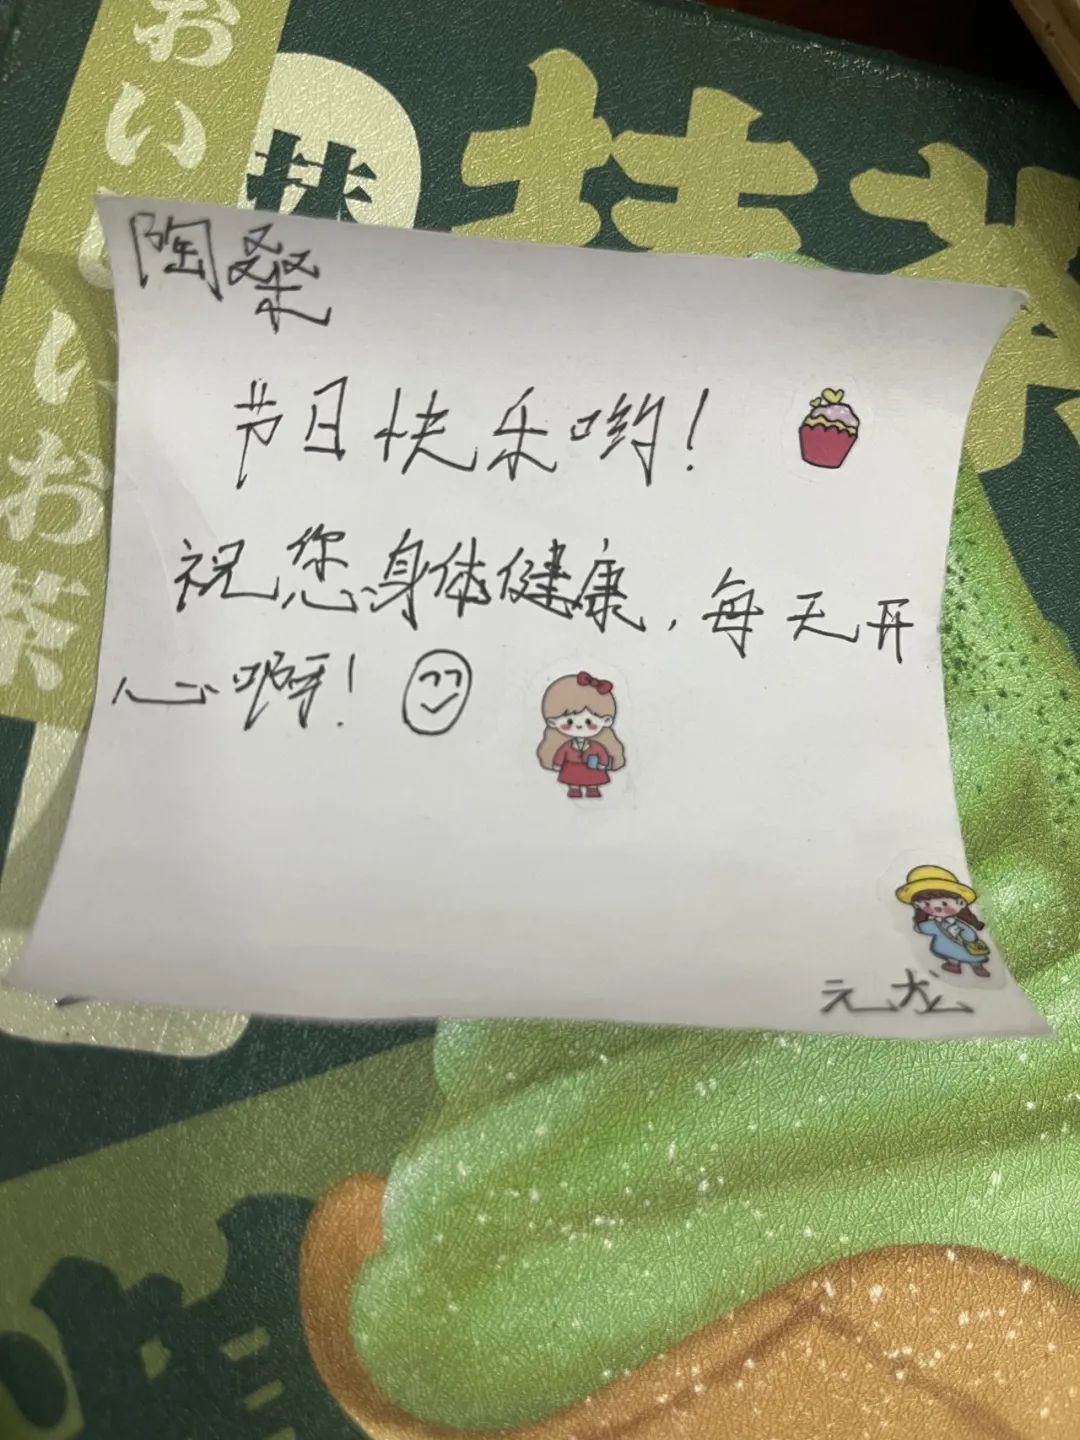 陶桑
节日快乐哟!
祝您身体健康,每天开
心啊!
元龙
おい
いお茶
抹
抹茶